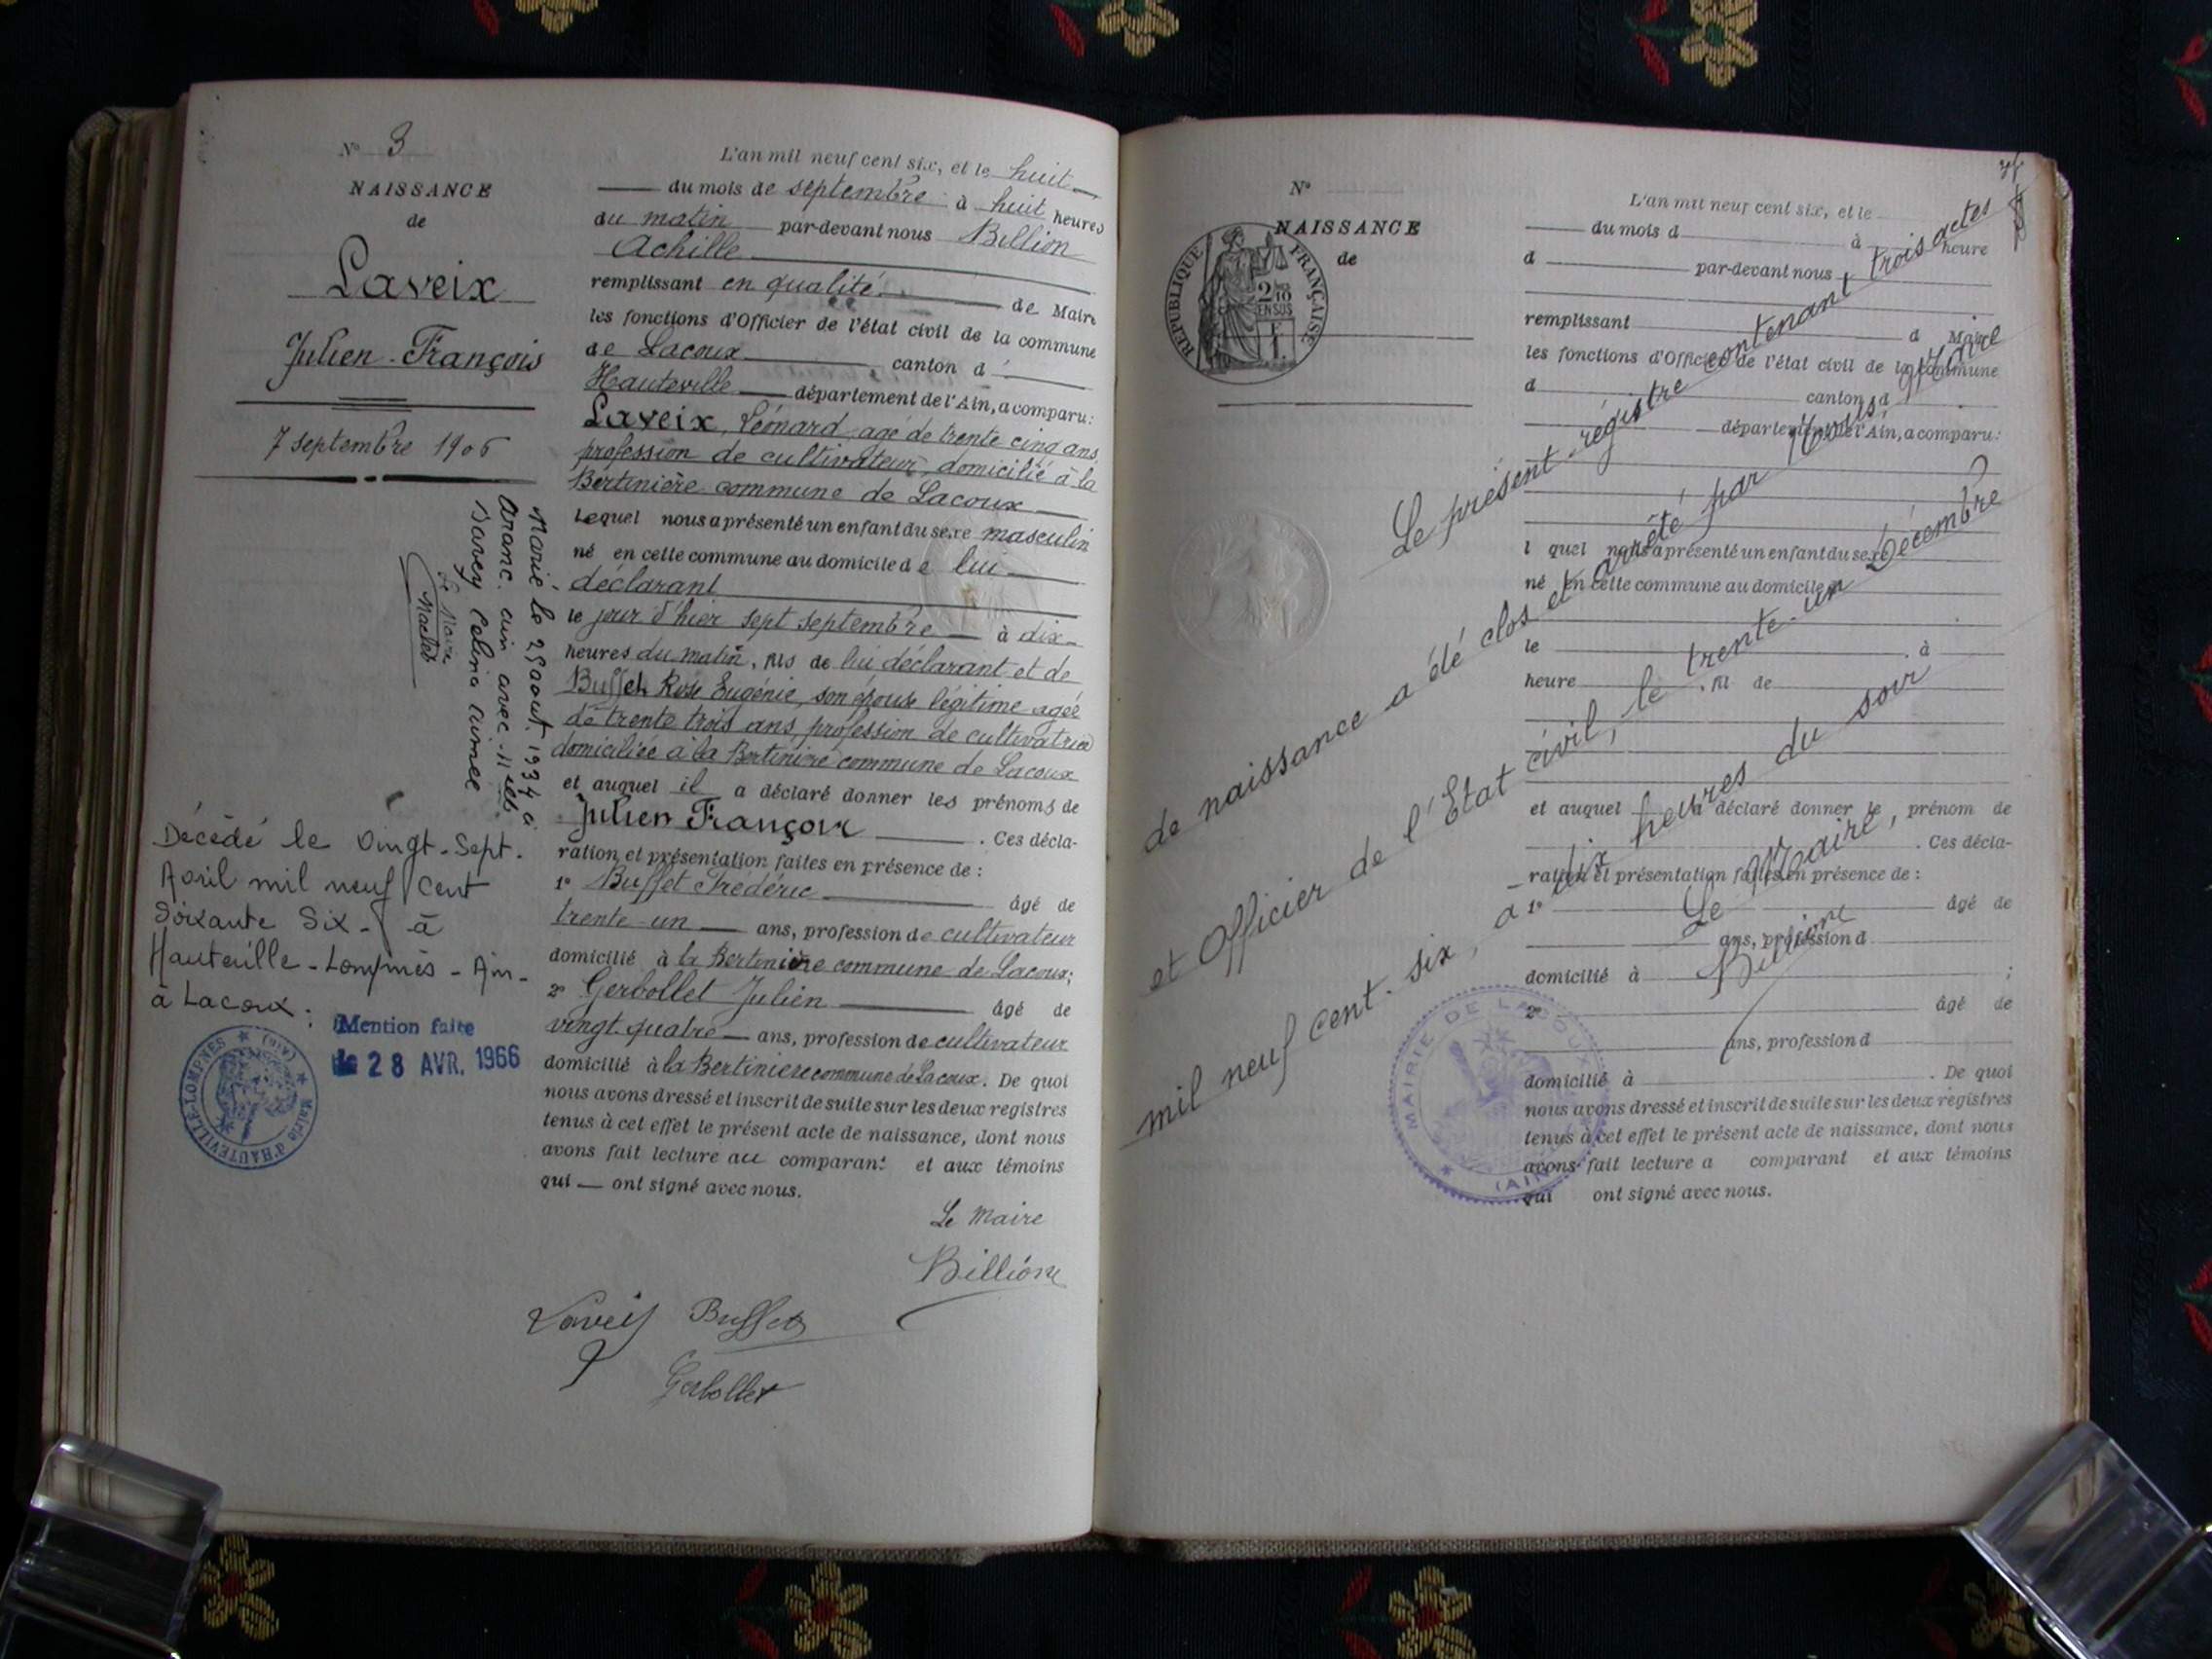 N° 3
NAISSANCE
de
Laveix
Julien-François
7 septembre 1906
Marié le 25 aout 1934 à
Aranc. ain avec Melle
Savey Celina aimee
Le Maire
Décédé le Vingt-Sept.
Avril mil neuf Cent
Soixante Six - à
Hauteville-Lompnès - Ain -
à Lacoux :
Mention faite
le 28 AVR. 1966
Mairie d'HAUTEVILLE-LOMPNES (Ain)
L'an mil neuf cent six, et le huit
du mois de septembre à huit heures
du matin par-devant nous Billion
Achille
remplissant en qualité de Maire
les fonctions d'Officier de l'état civil de la commune
de Lacoux canton d
Hauteville département de l'Ain, a comparu :
Laveix, Léonard, agé de trente cinq ans
profession de cultivateur, domicilié à la
Bertinière commune de Lacoux
Lequel nous a présenté un enfant du sexe masculin
né en cette commune au domicile de lui
déclarant
le jour d'hier sept septembre à dix
heures du matin, fils de lui déclarant et de
Buffet Rose Eugénie, son épouse légitime agée
de trente trois ans, profession de cultivatrice
domiciliée à la Bertinière commune de Lacoux
et auquel il a déclaré donner les prénoms de
Julien François . Ces décla-
ration et présentation faites en présence de :
1° Buffet Frédéric âgé de
trente-un ans, profession de cultivateur
domicilié à la Bertinière commune de Lacoux;
2° Gerbollet Julien âgé de
vingt-quatre ans, profession de cultivateur
domicilié à la Bertiniere commune de Lacoux. De quoi
nous avons dressé et inscrit de suite sur les deux registres
tenus à cet effet le présent acte de naissance, dont nous
avons fait lecture au comparant et aux témoins
qui ont signé avec nous.
Le Maire
Billion
Laveix Buffet
Gerbollet
N°
NAISSANCE
de
RÉPUBLIQUE FRANÇAISE
2/10
EN SUS
1 F.
L'an mil neuf cent six, et le
du mois d à heure
d par-devant nous
remplissant d Maire
les fonctions d'Officier de l'état civil de la commune
d canton d
département de l'Ain, a comparu :
l quel nous a présenté un enfant du sexe
né en cette commune au domicile d
le à
heure , fil de
et auquel a déclaré donner le prénom de
. Ces décla-
ration et présentation faites en présence de :
1° âgé de
ans, profession d
domicilié à ;
2° âgé de
ans, profession d
domicilié à . De quoi
nous avons dressé et inscrit de suite sur les deux registres
tenus à cet effet le présent acte de naissance, dont nous
avons fait lecture a comparant et aux témoins
qui ont signé avec nous.
Le présent régistre contenant trois actes
de naissance a été clos et arrêté par Nous, Maire
et Officier de l'Etat civil, le trente-un Décembre
mil neuf cent-six, a dix heures du soir
Le Maire,
Billion
MAIRIE DE LACOUX (AIN)